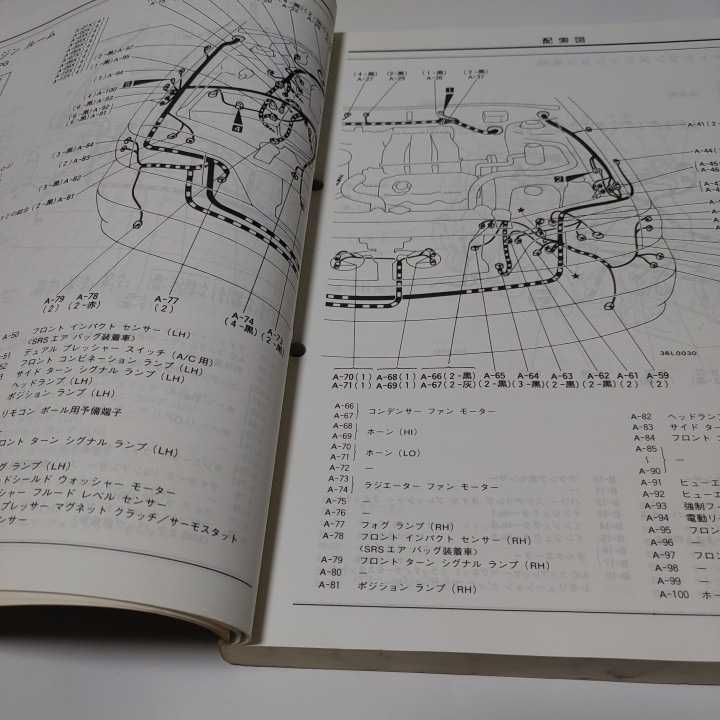 ジン ルーム
A-95
(5)A-94
(4-黒)A-100
(6-黒)A-93
(6-黒)A-92
(6-黒)A-91
(3-黒)A-84
(2)A-83
(3-黒)A-82
(2-黒)A-81
A-79 A-78
(2) (2-赤)
A-77
(2)
A-74
(4-黒)
A-73
(2-黒)
4
A-50 フロント インパクト センサー(LH)
〈SRSエア バッグ装着車〉
-51 デュアル プレッシャー スイッチ(A/C用)
52 フロント コンビネーション ランプ(LH)
サイド ターン シグナル ランプ(LH)
ヘッドランプ(LH)
ポジション ランプ(LH)
リモコン ポール用予備端子
ロント ターン シグナル ランプ(LH)
グ ランプ(LH)
ドシールド ウォッシャー モーター
シャー フルード レベル センサー
プレッサー マグネット クラッチ/サーモスタット
ンサー
配索図
(4-黒) (2-黒) (1-黒) (2-黒)
A-27 A-29 A-36 A-37
1
A-41(2-
A-44
A-45
A-46
2
36L0030
A-70(1) A-68(1) A-66(2-黒) A-65 A-64 A-63 A-62 A-61 A-59
A-71(1) A-69(1) A-67(2-灰) (2-黒) (3-黒) (2-黒) (2-黒) (2) (2)
A-66
A-67 コンデンサー ファン モーター
A-68
A-69 ホーン(HI)
A-70
A-71 ホーン(LO)
A-72 —
A-73
A-74 ラジエーター ファン モーター
A-75 —
A-76 —
A-77 フォグ ランプ(RH)
A-78 フロント インパクト センサー(RH)
〈SRSエア バッグ装着車〉
A-79 フロント ターン シグナル ランプ(RH)
A-80 —
A-81 ポジション ランプ(RH)
A-82 ヘッドラン
A-83 サイド タ
A-84 フロント
A-85
≀ —
A-90
A-91 ヒューエ
A-92 ヒューエ
A-93 強制フィ
A-94 電動リ
A-95 フロン
A-96 —
A-97 フロン
A-98 —
A-99 —
A-100 ホー